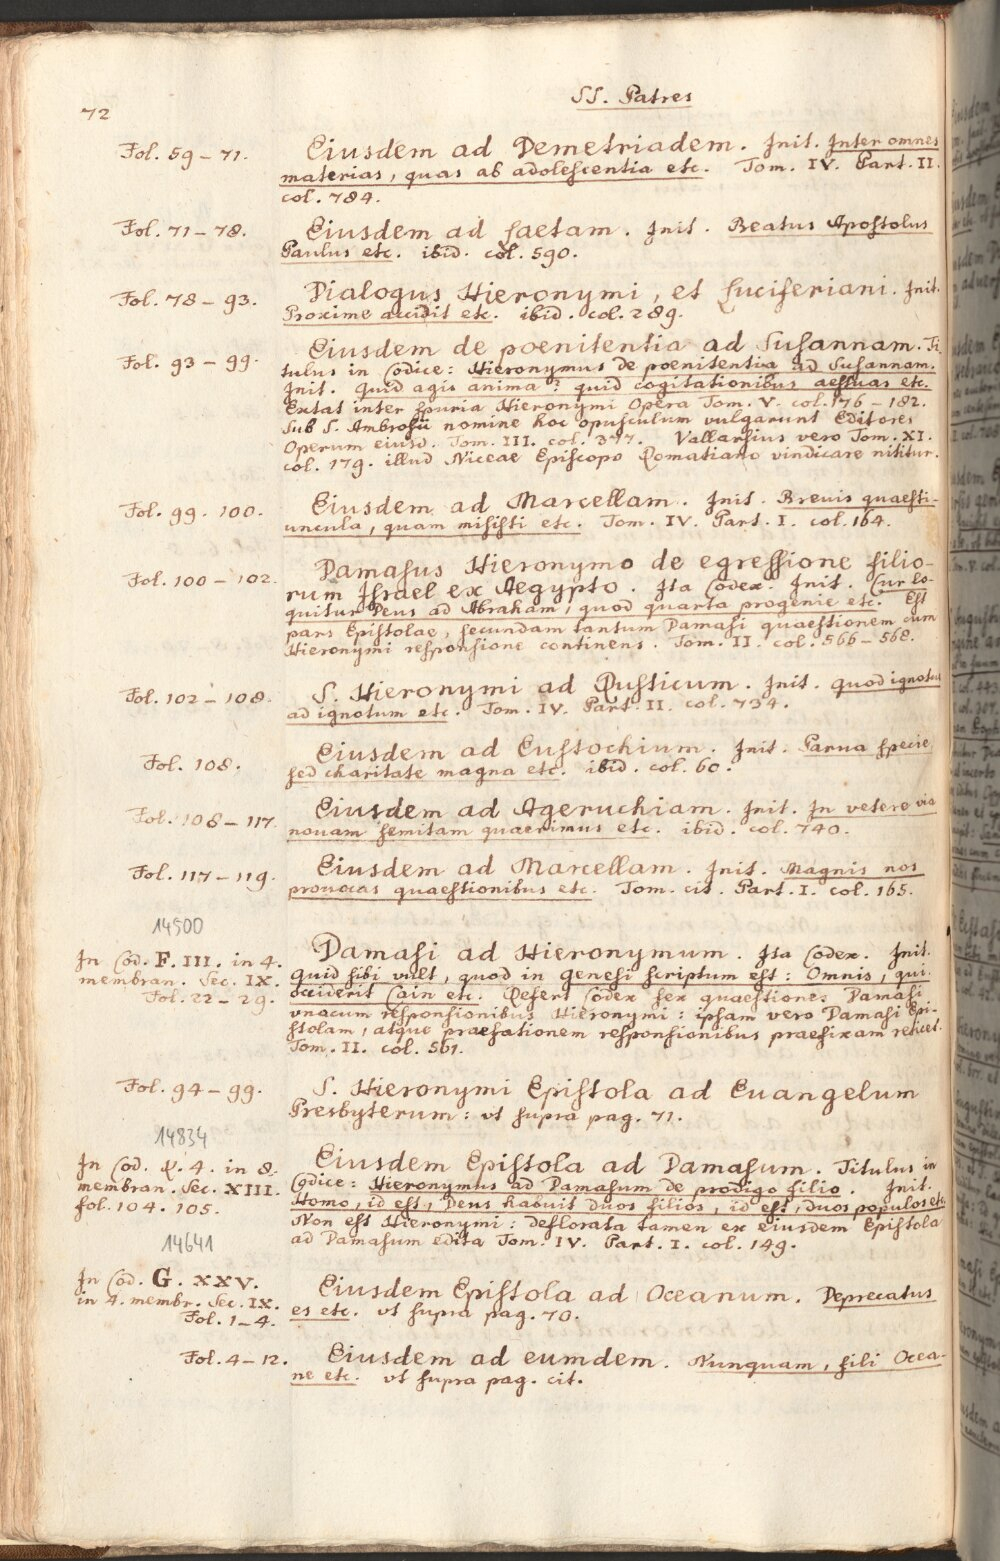 72
SS. Patres
Fol. 59 – 71.
Eiusdem ad Demetriadem. Init. Inter omnes
materias, quas ab adolescentia etc. Tom. IV. Part. II.
col. 784.
Fol. 71 – 78.
Eiusdem ad Laetam. Init. Beatus Apostolus
Paulus etc. ibid. col. 590.
Fol. 78 – 93.
Dialogus Hieronymi, et Luciferiani. Init.
Proxime accidit etc. ibid. col. 289.
Fol. 93 – 99.
Eiusdem de poenitentia ad Susannam. Ti
tulus in Codice: Hieronymus de poenitentia ad Susannam.
Init. Quid agis anima? quid cogitationibus aestuas etc.
Extat inter spuria Hieronymi Opera Tom. V. col. 176 – 182.
Sub S. Ambrosii nomine hoc opusculum vulgarunt Editores
Operum eiusd. Tom. III. col. 377. Vallarsius vero Tom. XI.
col. 179. illud Niceae Episcopo Romatiano vindicare nititur.
Fol. 99. 100.
Eiusdem ad Marcellam. Init. Brevis quaesti-
uncula, quam misisti etc. Tom. IV. Part. I. col. 164.
Fol. 100 – 102.
Damasus Hieronymo de egressione filio-
rum Israel ex Aegypto. Ita Codex. Init. Cur lo-
quitur Deus ad Abraham, quod quarta progenie etc. Est
pars Epistolae, secundam tantum Damasi quaestionem cum
Hieronymi responsione continens. Tom. II. col. 566 – 568.
Fol. 102 – 108.
S. Hieronymi ad Rusticum. Init. Quod ignotus
ad ignotum etc. Tom. IV. Part. II. col. 734.
Fol. 108.
Eiusdem ad Eustochium. Init. Parua specie
sed charitate magna etc. ibid. col. 60.
Fol. 108 – 117.
Eiusdem ad Ageruchiam. Init. In vetere via
nouam semitam quaerimus etc. ibid. col. 740.
Fol. 117 – 119.
Eiusdem ad Marcellam. Init. Magnis nos
prouocas quaestionibus etc. Tom. cit. Part. I. col. 165.
14500
In Cod. F. III. in 4.
membran. Sec. IX.
Fol. 22 – 29.
Damasi ad Hieronymum. Ita Codex. Init.
Quid sibi vult, quod in Genesi scriptum est: Omnis, qui
occiderit Cain etc. Refert Codex sex quaestiones Damasi
vnacum responsionibus Hieronymi: ipsam vero Damasi Epi-
stolam, atque praefationem responsionibus praefixam reticet.
Tom. II. col. 561.
Fol. 94 – 99.
S. Hieronymi Epistola ad Euangelum
Presbyterum: vt supra pag. 71.
14834
In Cod. 4. in 8.
membran. Sec. XIII.
fol. 104. 105.
Eiusdem Epistola ad Damasum. Titulus in
Codice: Hieronymus ad Damasum de prodigo filio. Init.
Homo, id est, Deus habuit duos filios, id est, duos populos etc
Non est Hieronymi: deflorata tamen ex eiusdem Epistola
ad Damasum edita Tom. IV. Part. I. col. 149.
14641
In Cod. G. XXV.
in 4. membr. Sec. IX.
Fol. 1 – 4.
Eiusdem Epistola ad Oceanum. Deprecatus
es etc. vt supra pag. 70.
Fol. 4 – 12.
Eiusdem ad eumdem. Nunquam, fili Ocea-
ne etc. vt supra pag. cit.